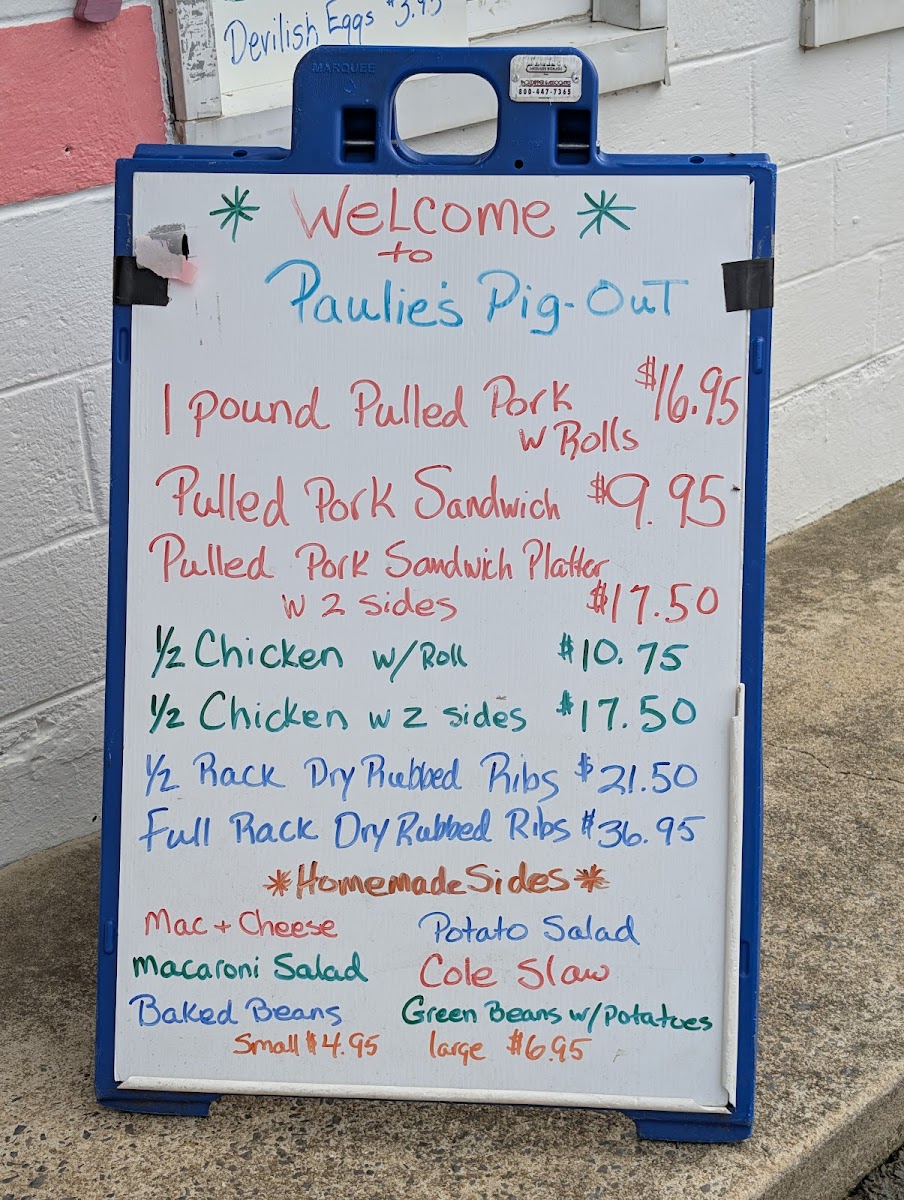 Devilish Eggs $3.95
MARQUEE
800-447-7365
* Welcome *
to
Paulie's Pig-Out
1 pound Pulled Pork $16.95
w Rolls
Pulled Pork Sandwich $9.95
Pulled Pork Sandwich Platter
w 2 sides $17.50
1/2 Chicken w/Roll $10.75
1/2 Chicken w 2 sides $17.50
1/2 Rack Dry Rubbed Ribs $21.50
Full Rack Dry Rubbed Ribs $36.95
*Homemade Sides*
Mac + Cheese Potato Salad
Macaroni Salad Cole Slaw
Baked Beans Green Beans w/Potatoes
Small $4.95 large $6.95